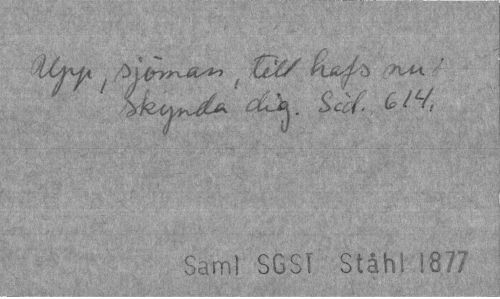 Upp, sjöman, till hafs nu!
Skynda dig. Scid. 614.
Saml SGST Ståhl 1877